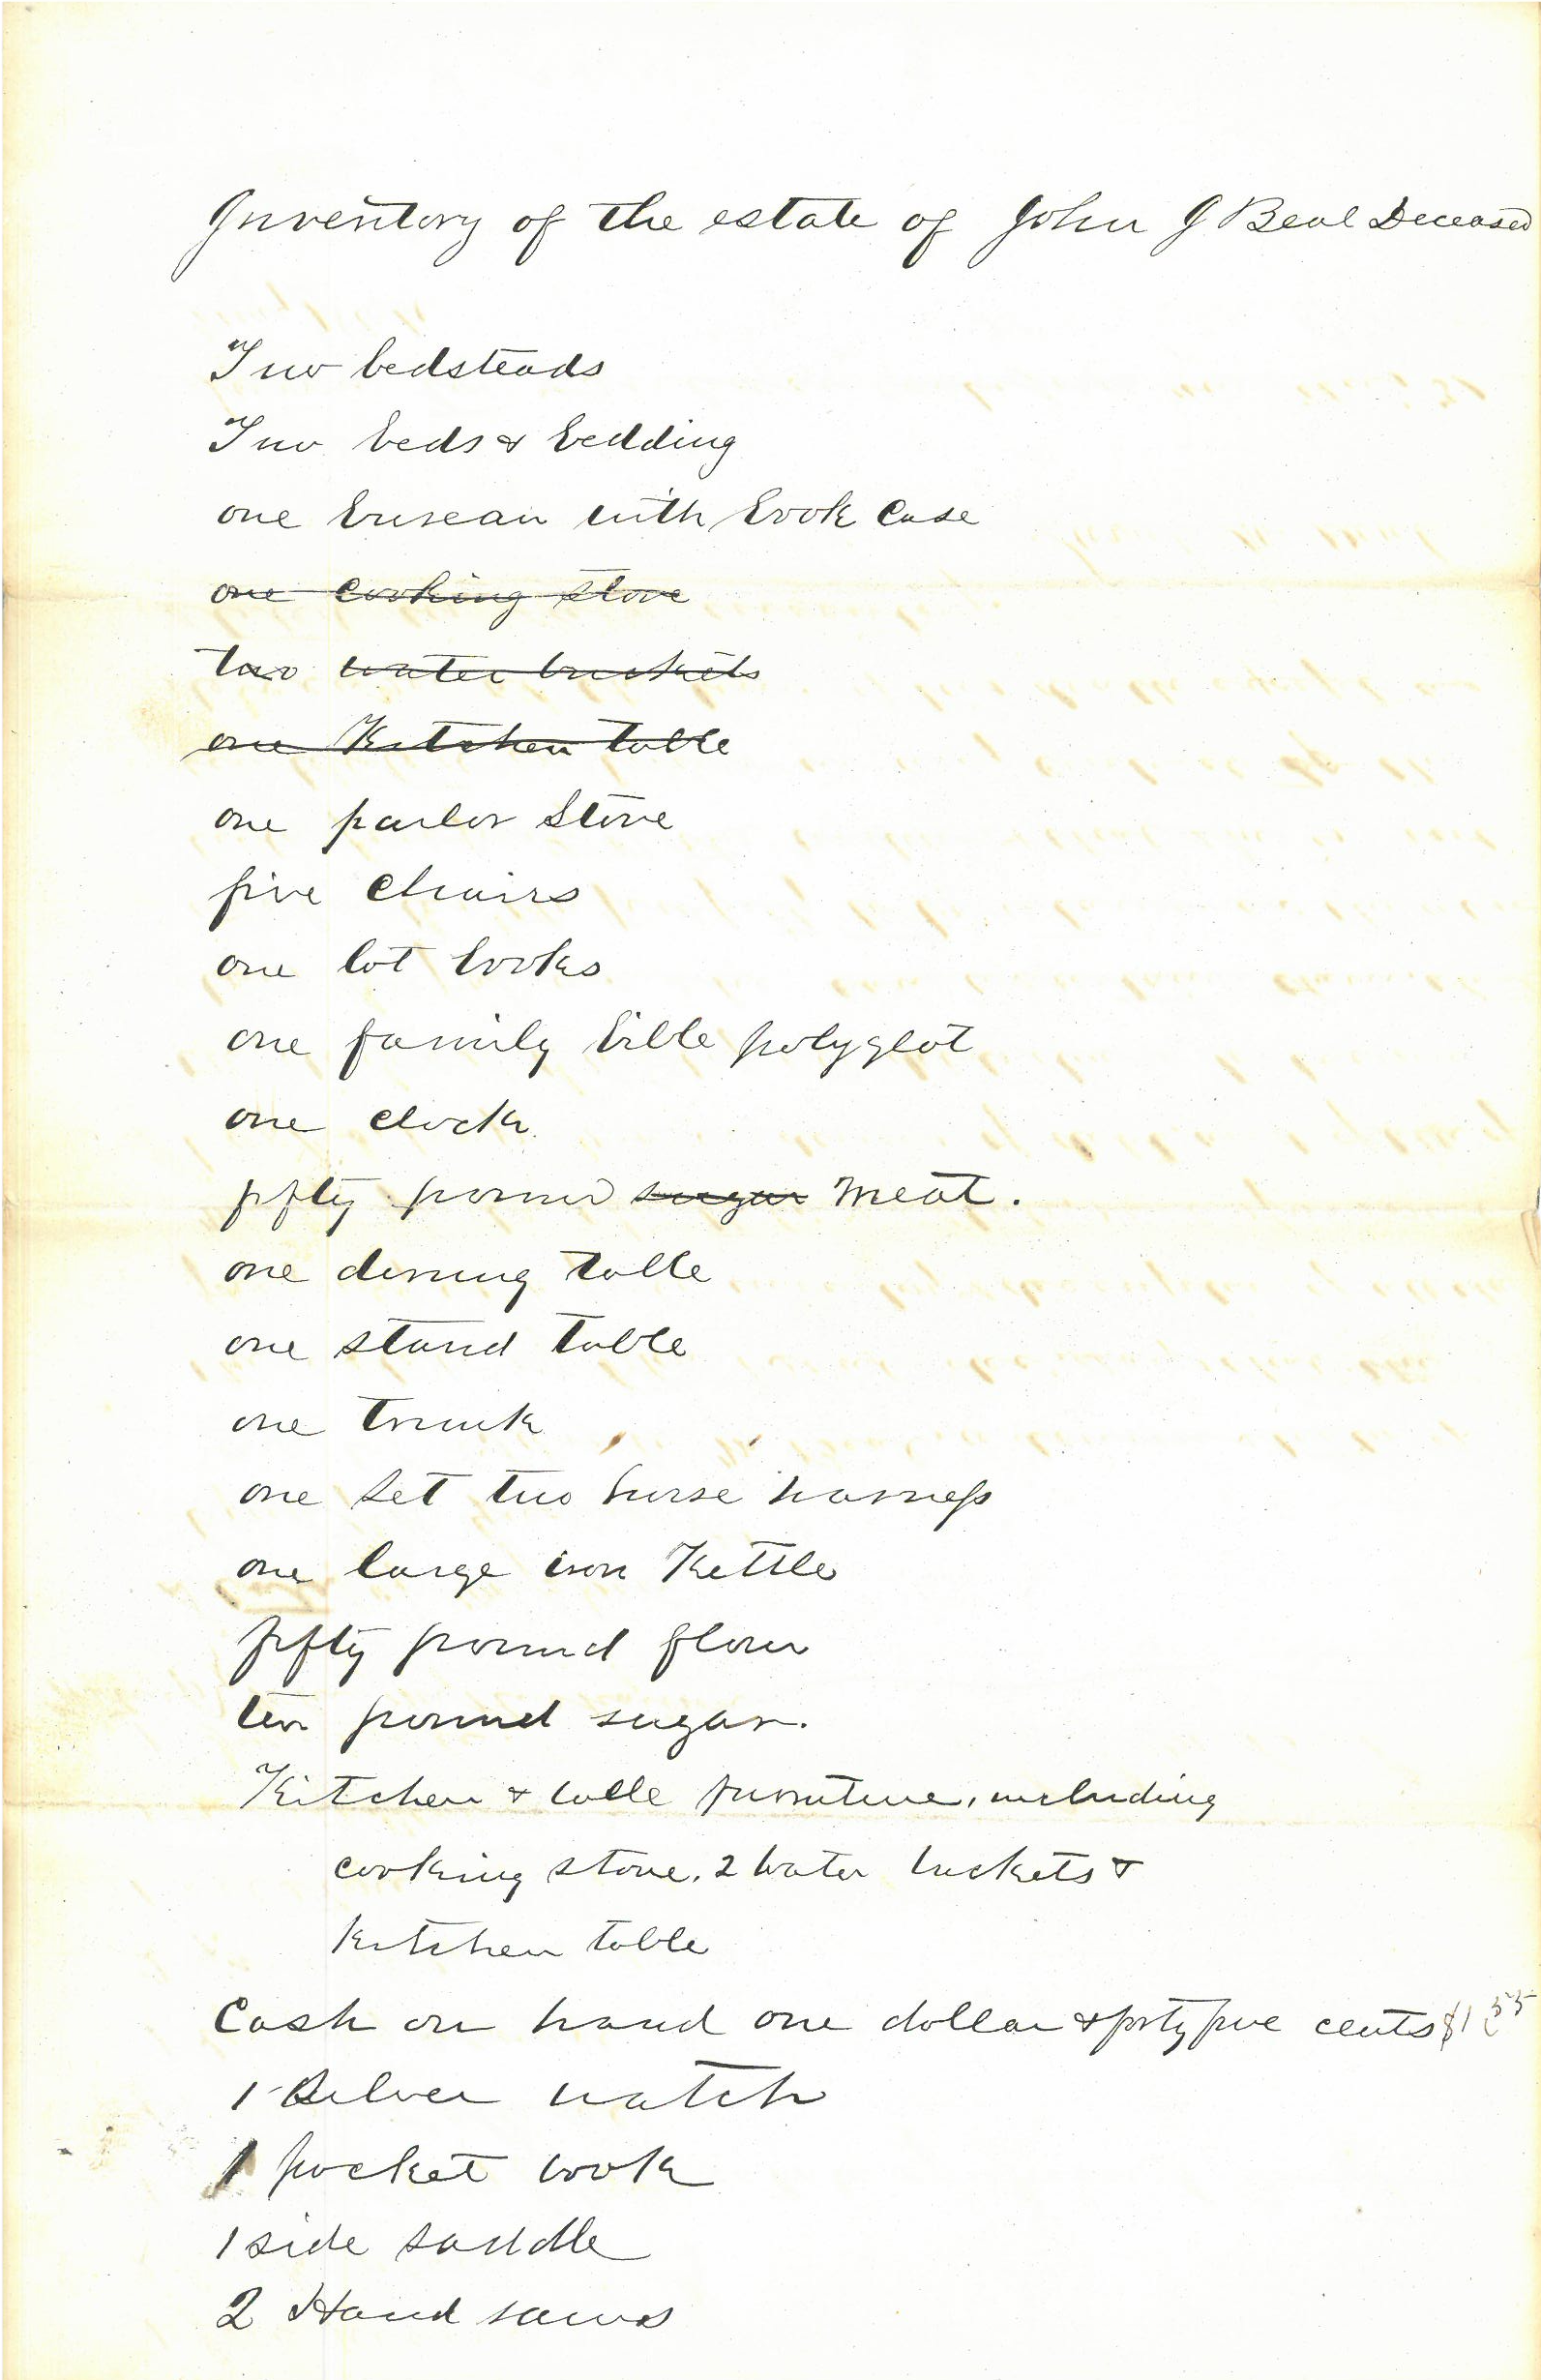 Inventory of the estate of John J Beal Deceased
Two bedsteads
Two beds & bedding
one bureau with book case
one cooking stove
two water buckets
one Kitchen table
one parlor Stove
five chairs
one lot books
one family bible polyglot
one clock
fifty pound sugar meat.
one dining table
one stand table
one trunk
one set two horse harness
one large iron Kettle
fifty pound flour
ten pound sugar.
Kitchen & table furniture, including
cooking stove, 2 water buckets &
kitchen table
Cash on hand one dollar & forty five cents $1
1 Silver watch
1 pocket book
1 side saddle
2 Hand saws